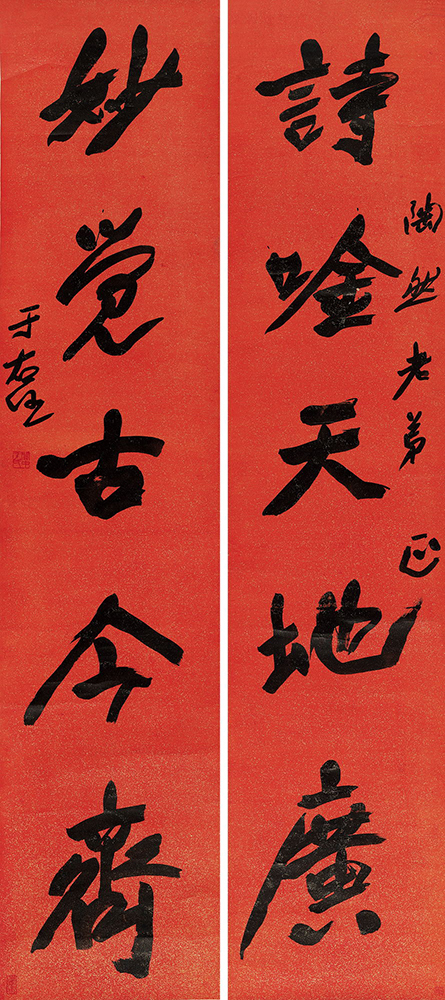 陶然老弟正
詩唫天地廣
妙觉古今齊
于右任